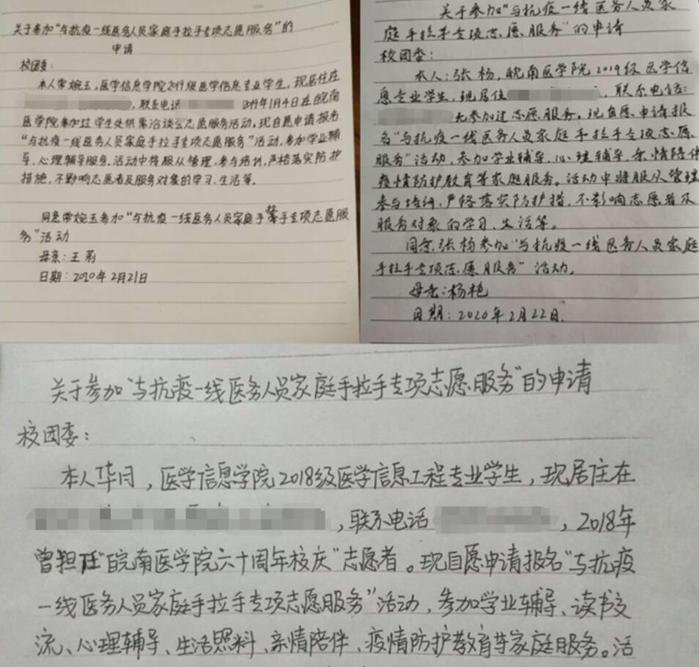 关于参加“与抗疫一线医务人员家庭手拉手专项志愿服务”的
申请
校团委:
本人常婉玉,医学信息学院2019级医学信息专业学生,现居住在
,联系电话 2019年1月4日在皖南
医学院参加过学生处供集洽谈会志愿服务活动,现自愿申请报名
“与抗疫一线医务人员家庭手拉手专项志愿服务”活动,参加学业辅
导、心理辅导服务。活动中将服从管理,参与培训,严格落实防护
措施,不影响志愿者及服务对象的学习、生活等。
同意常婉玉参加“与抗疫一线医务人员家庭手拉手专项志愿服
务”活动
母亲:王莉
日期:2020年2月21日
关于参加“与抗疫一线医务人员家
庭手拉手专项志愿服务”的申请
校团委:
本人:张杨,皖南医学院2019级医学信
息专业学生,现居住 ,联系电话:
无参加过志愿服务。现自愿申请报
名“与抗疫一线医务人员家庭手拉手专项志愿
服务”活动,参加学业辅导,心理辅导,亲情陪伴
疫情防护教育等家庭服务。活动中将服从管理
参与培训,严格落实防护措,不影响志愿者及
服务对象的学习、生活等。
同意张杨参加“与抗疫一线医务人员家庭
手拉手专项志愿服务”活动。
母亲:杨艳
日期:2020年2月22日
关于参加“与抗疫一线医务人员家庭手拉手专项志愿服务”的申请
校团委:
本人华月,医学信息学院2018级医学信息工程专业学生,现居住在
,联系电话 ,2018年
曾担任“皖南医学院六十周年校庆”志愿者。现自愿申请报名“与抗疫
一线医务人员家庭手拉手专项志愿服务”活动,参加学业辅导、读书交
流、心理辅导、生活照料、亲情陪伴、疫情防护教育等家庭服务。活